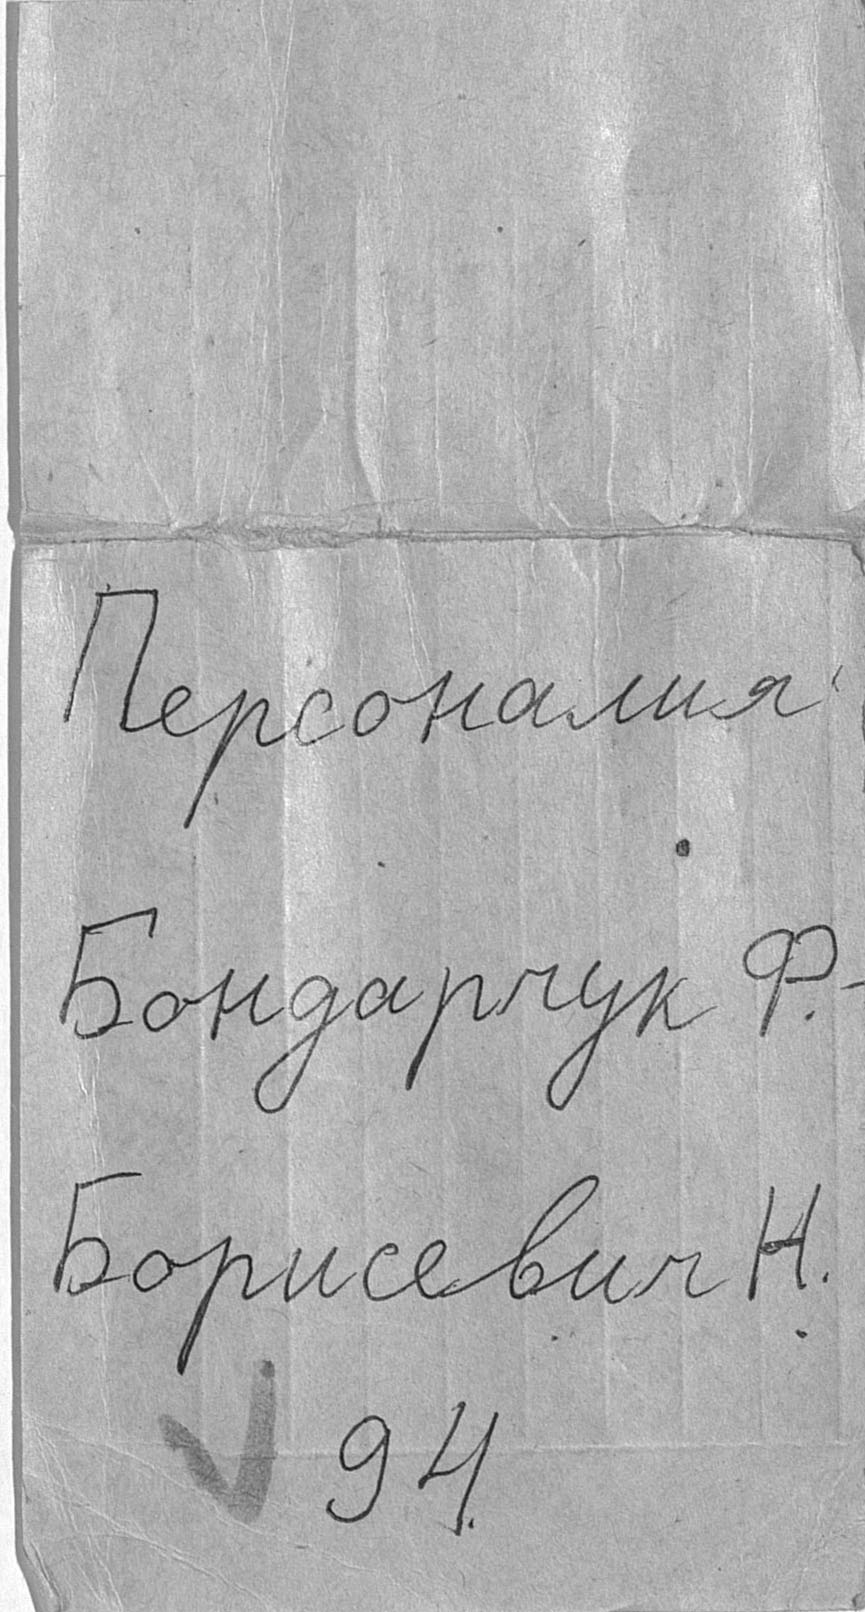 Персоналия
Бондарчук Ф.-
Борисевич Н.
94